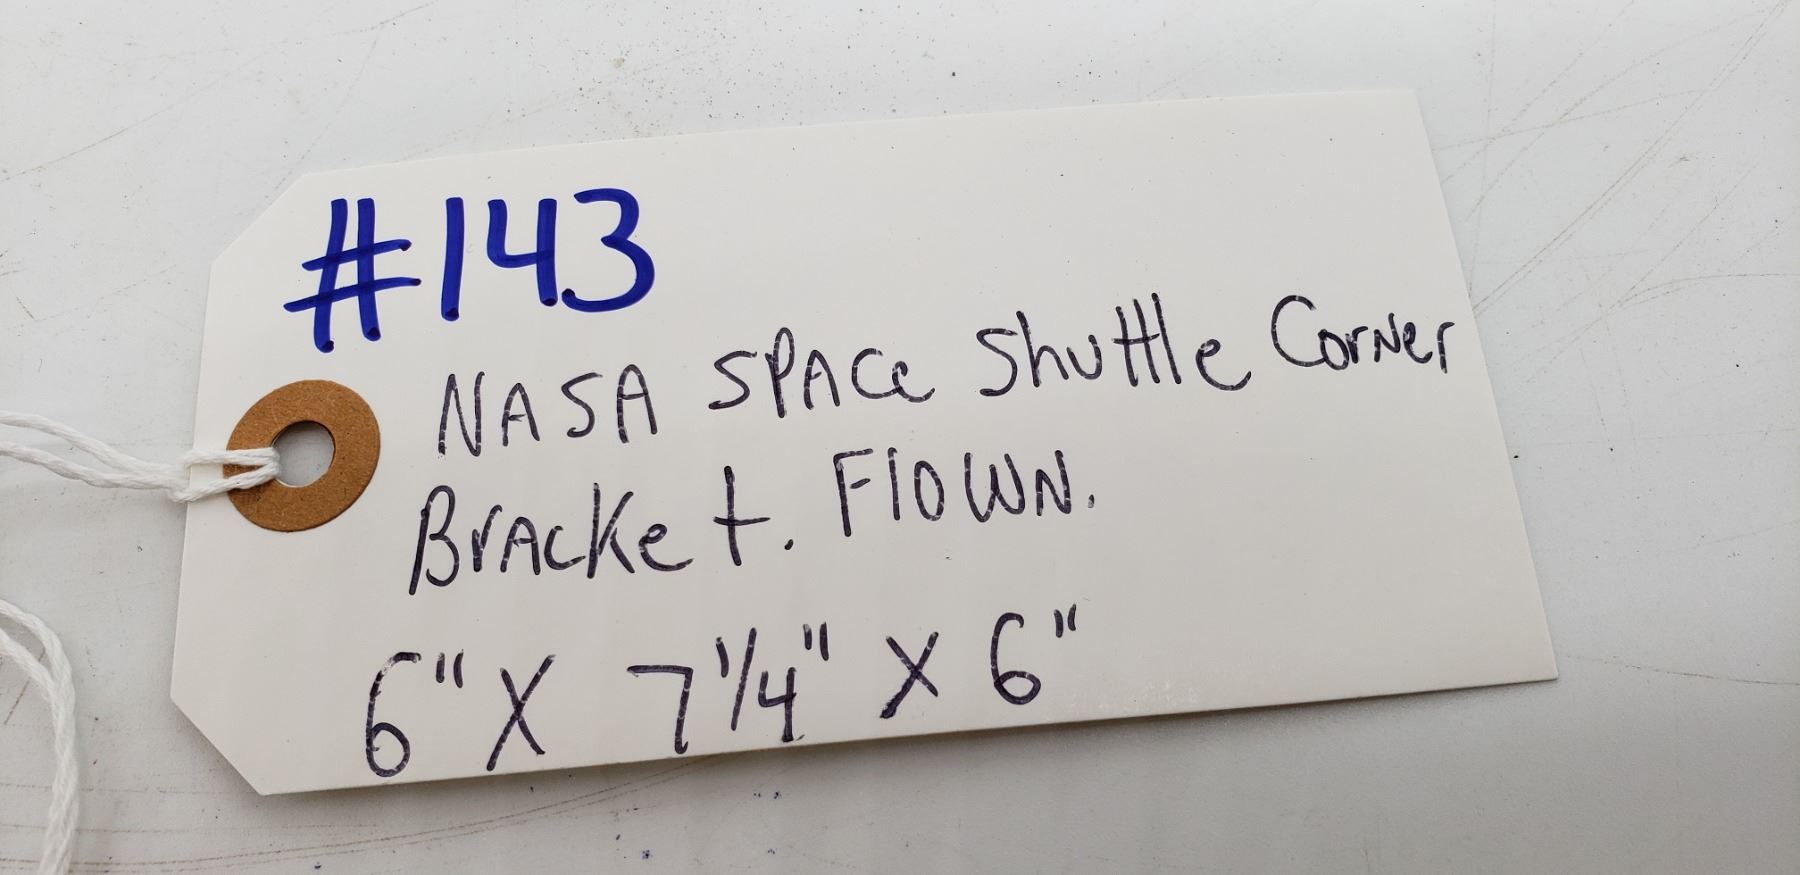 #143
NASA SPACe Shuttle CorNer
BrACKet. FlOWN.
6" X 7 1/4" X 6"